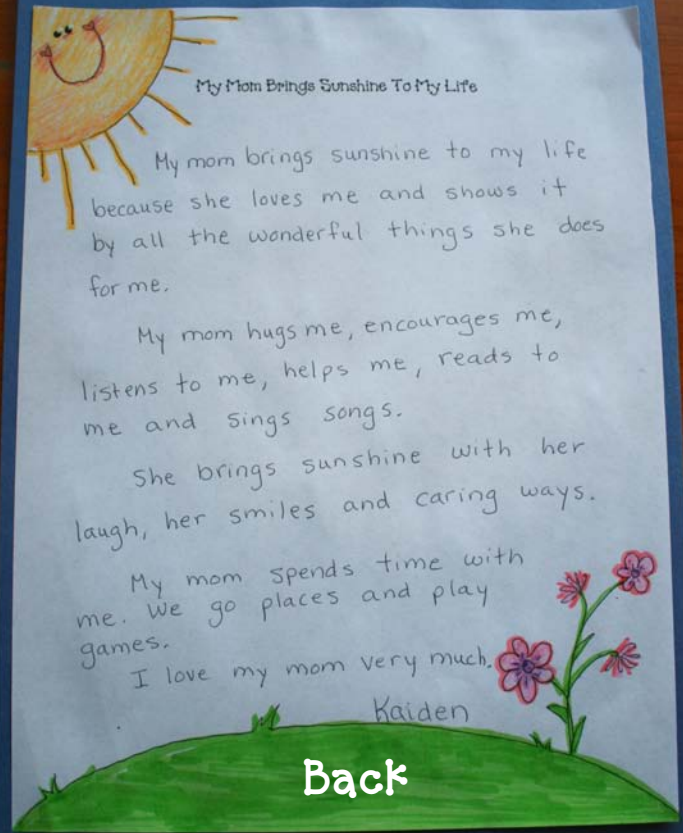 My Mom Brings Sunshine To My Life
My mom brings sunshine to my life
because she loves me and shows it
by all the wonderful things she does
for me.
My mom hugs me, encourages me,
listens to me, helps me, reads to
me and sings songs.
She brings sunshine with her
laugh, her smiles and caring ways.
My mom spends time with
me. We go places and play
games.
I love my mom very much.
Kaiden
Back